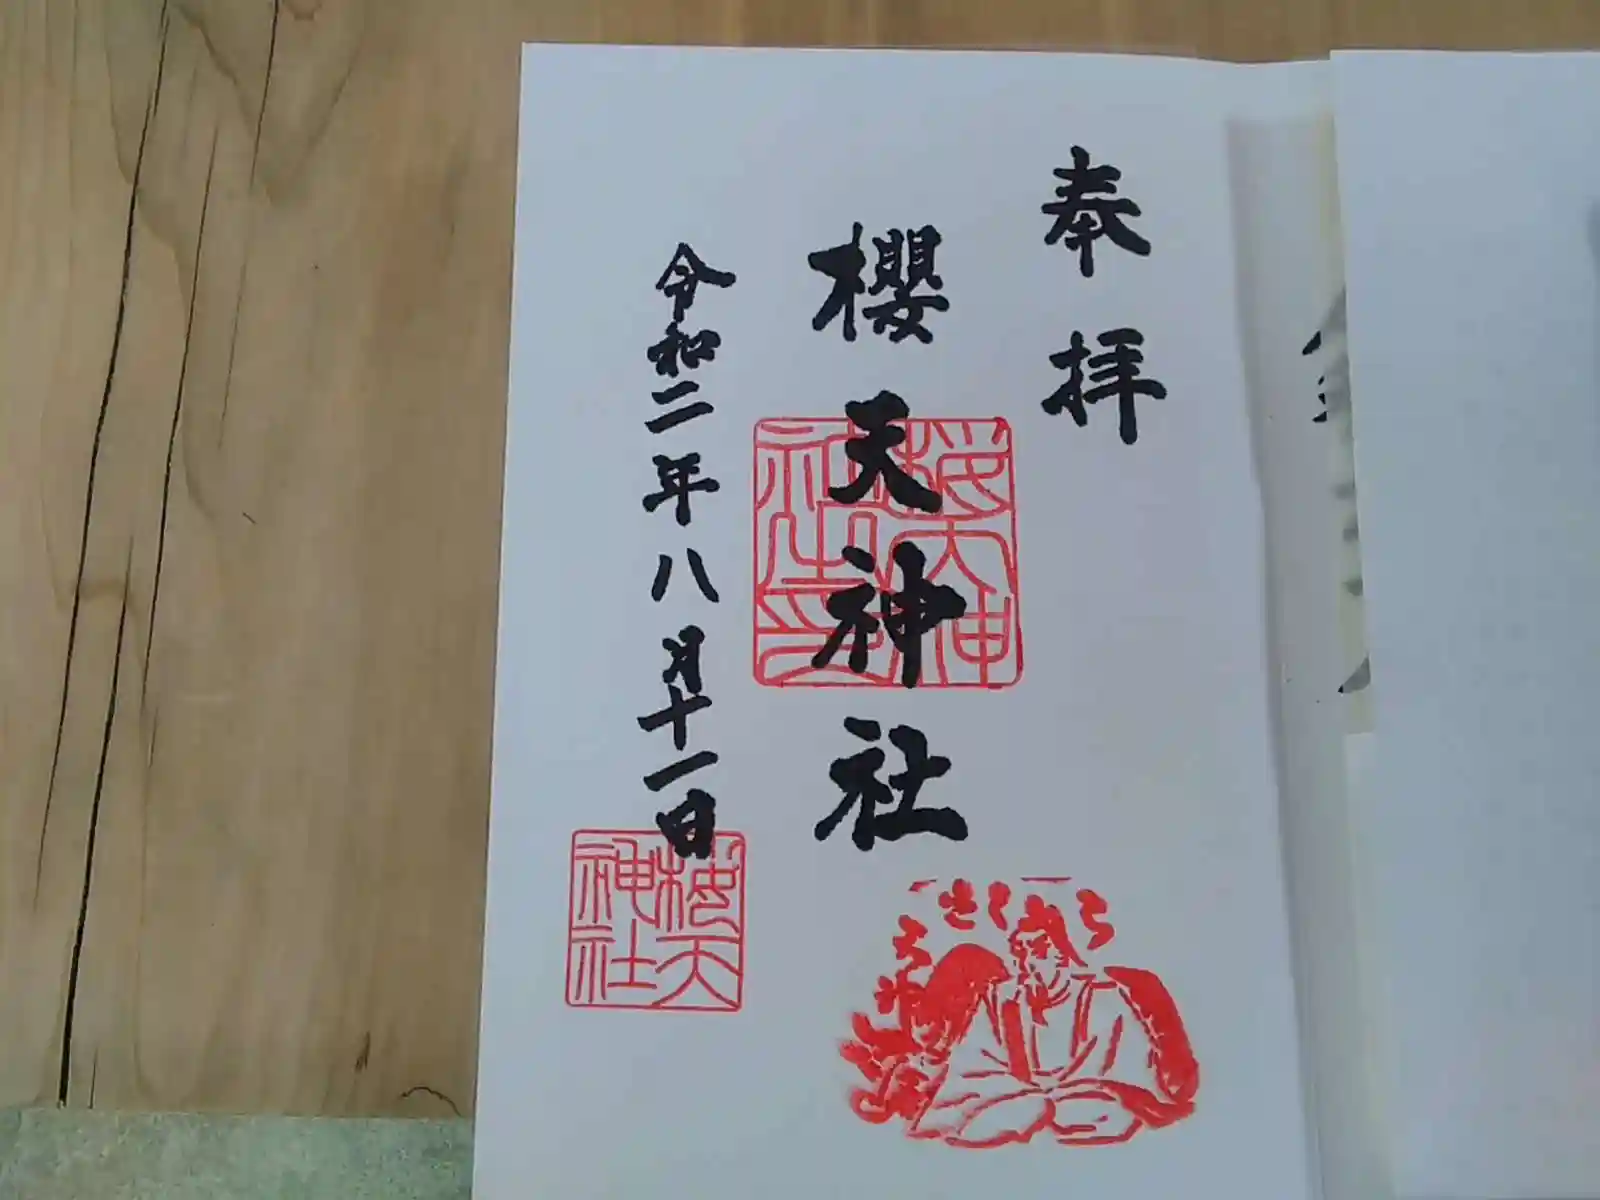 奉拝
櫻天神社
令和二年八月十一日
桜天神
社之印
桜天
神社
さくら
天神